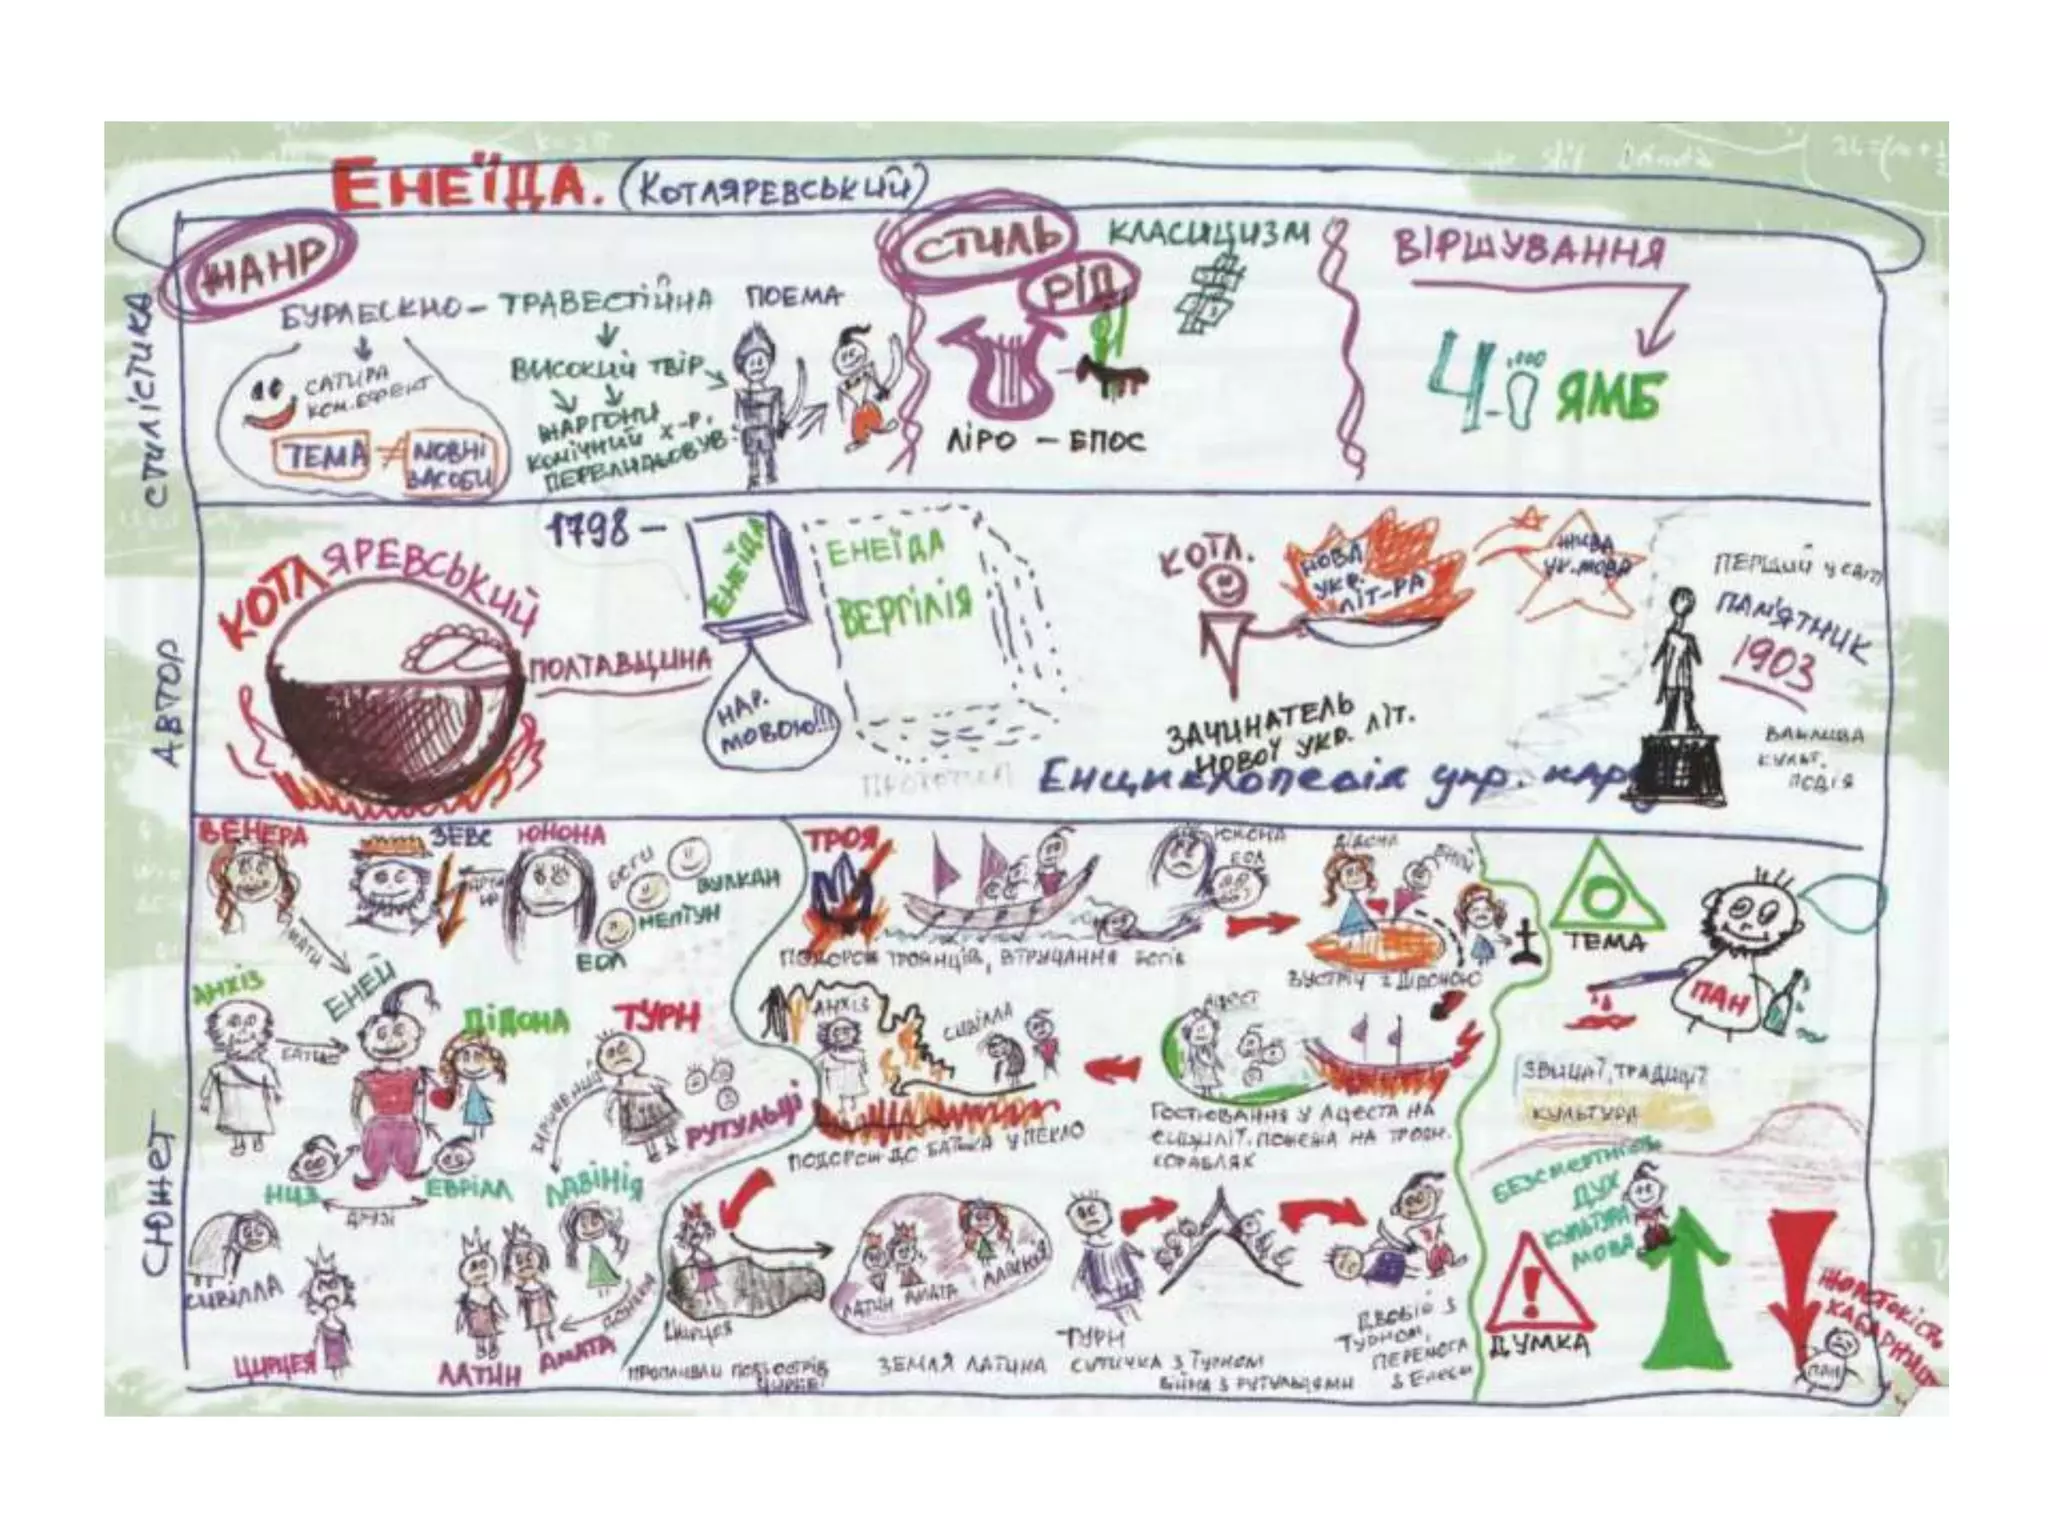 ЕНЕЇДА. (КОТЛЯРЕВСЬКИЙ)
СТИЛІСТИКА
ЖАНР
БУРЛЕСКНО – ТРАВЕСТІЙНА ПОЕМА
САТИРА
КОМ. ЕФЕКТ
ТЕМА ≠ МОВНІ ЗАСОБИ
ВИСОКИЙ ТВІР
ЖАРГОНИ
КОМІЧНИЙ Х-Р.
СТИЛЬ
КЛАСИЦИЗМ
РІД
ЛІРО – ЕПОС
ВІРШУВАННЯ
4-
ЯМБ
АВТОР
КОТЛЯРЕВСЬКИЙ
ПОЛТАВЩИНА
1798 –
ЕНЕЇДА
НАР.
МОВОЮ!!!
ЕНЕЇДА
ВЕРГІЛІЯ
ПРОТОТИП
КОТЛ.
НОВА
УКР.
ЛІТ-РА
ЖИВА
УК. МОВА
ЗАЧИНАТЕЛЬ
НОВОЇ УКР. ЛІТ.
Енциклопедія укр. нар
ПЕРШИЙ У СВІТІ
ПАМ'ЯТНИК
1903
ВАЖЛИВА
КУЛЬТ.
ПОДІЯ
СЮЖЕТ
ВЕНЕРА
ЗЕВС
ЮНОНА
БОГИ
ВУЛКАН
НЕПТУН
ЕОЛ
МАТИ
АНХІЗ
БАТЬКО
ЕНЕЙ
ДІДОНА
ТУРН
ЗАРУЧЕНИЙ
РУТУЛЬЦІ
НИЗ
ЕВРІАЛ
ДРУЗІ
ЛАВІНІЯ
СИВІЛЛА
ЦИРЦЕЯ
ЛАТИН
АМАТА
ДОНЬКА
ТРОЯ
ЮНОНА
ЕОЛ
ПОДОРОЖ ТРОЯНЦІВ, ВТРУЧАННЯ БОГІВ
ДІДОНА
ЕНЕЙ
ЗУСТРІЧ З ДІДОНОЮ
АНХІЗ
СИВІЛЛА
ПОДОРОЖ ДО БАТЬКА У ПЕКЛО
АЦЕСТ
ГОСТЮВАННЯ У АЦЕСТА НА
СИЦИЛІЇ. ПОЖЕЖА НА ТРОЯН.
КОРАБЛЯХ
ЦИРЦЕЯ
ПРОПЛИВЛИ ПОВЗ ОСТРІВ
ЦИРЦЕЇ
ЛАТИН АМАТА
ЗЕМЛЯ ЛАТИНА
ТУРН
СУТИЧКА З ТУРНОМ
ВІЙНА З РУТУЛЬЦЯМИ
ДВОБІЙ З
ТУРНОМ,
ПЕРЕМОГА
З Енеєм
ТЕМА
ПАН
ЗВИЧАЇ, ТРАДИЦІЇ
КУЛЬТУРА
БЕЗСМЕРТНІСТЬ
ДУХ
КУЛЬТУРА
МОВА
!
ДУМКА
ЖОРСТОКІСТЬ
ПАН